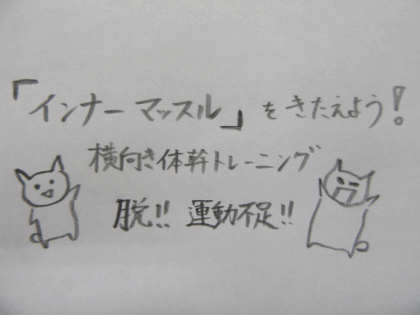 「インナーマッスル」をきたえよう!
横向き体幹トレーニング
脱!! 運動不足!!